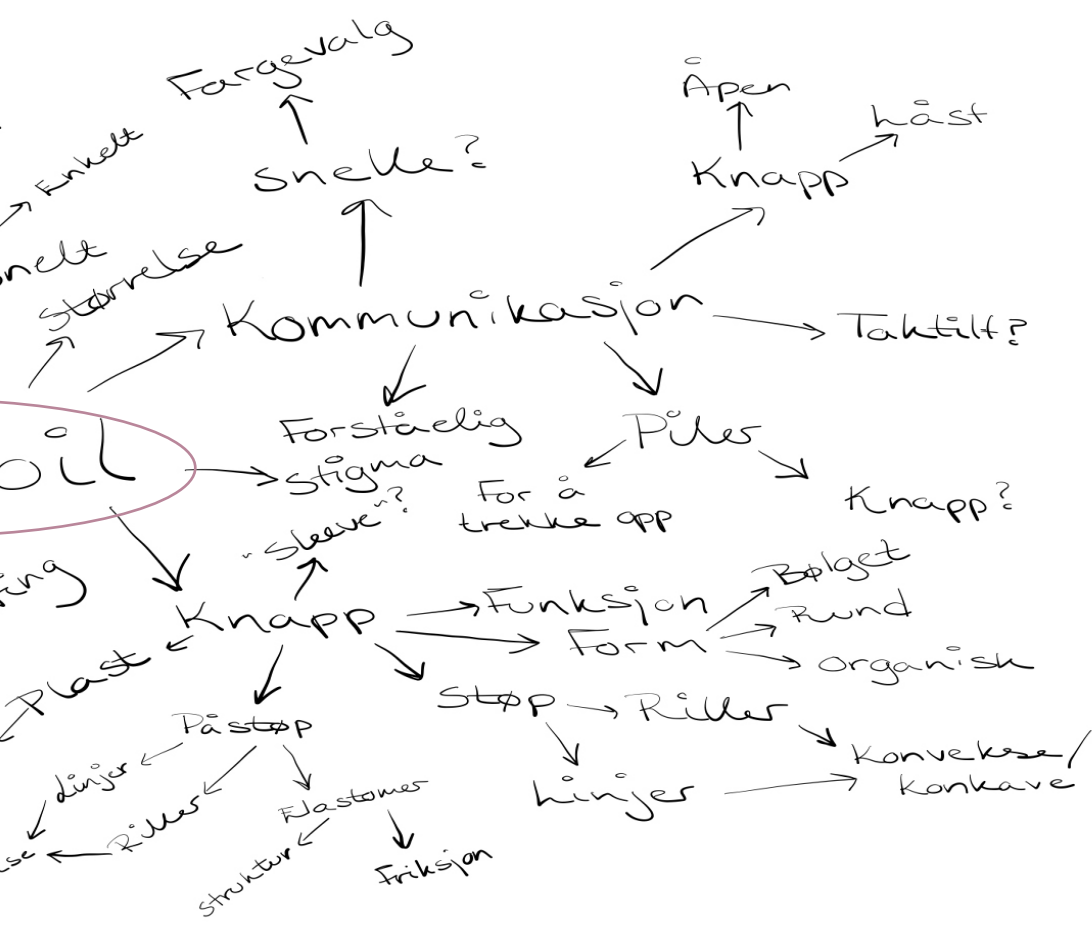 Fargevalg
Åpen
Låst
Enkelt
Snelle?
Knapp
nelt
Størrelse
Kommunikasjon
Taktilt?
Forståelig
Piler
oil
Stigma
For å
trekke opp
Knapp?
"Sleeve"?
Bølget
ing
Knapp
Funksjon
Rund
Form
organisk
Plast
Støp
Riller
Påstøp
Konvekse/
konkave
Linjer
Linjer
Elastomer
Riller
se
struktur
Friksjon